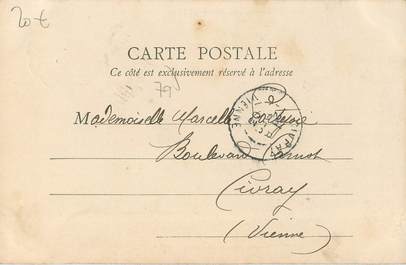 20 €
CARTE POSTALE
Ce côté est exclusivement réservé à l'adresse
79
Mademoiselle Marcelle
Boulevard
Civray
(Vienne)
CIVRAY
VIENNE